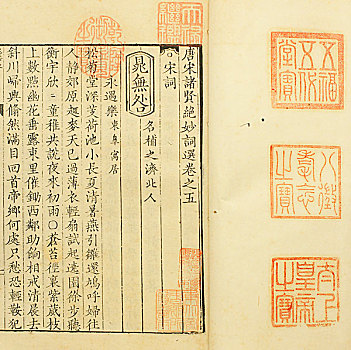 五福五代堂寶
八徵耄念之寶
太上皇帝之寶
天祿繼鑑
唐宋諸賢絕妙詞選卷之五
宋詞
晁無咎
名補之濟北人
永遇樂 東皋寓居
松菊堂深芰荷池小長夏清暑燕引雛還鳩呼婦往
人靜郊原趣麥天已過薄衣輕扇試起遶園徐步聽
衡宇欣欣童稚共說夜來初雨○蒼苔徑裏紫葳枝
上數點幽花垂露東里催鋤西鄰助餉相戒清晨去
斜川歸興翛然滿目回首帝鄉何處只愁恐輕鞍犯